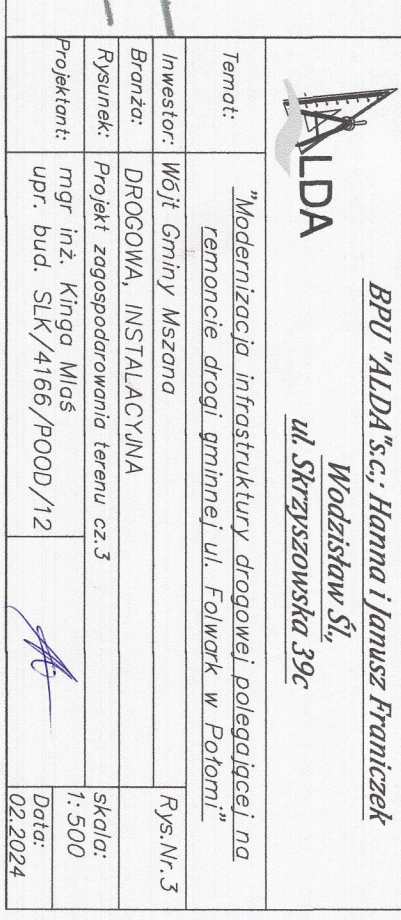 ALDA
BPU "ALDA"s.c.; Hanna i Janusz Franiczek
Wodzisław Śl.,
ul. Skrzyszowska 39c
Temat:
"Modernizacja infrastruktury drogowej polegającej na
remoncie drogi gminnej ul. Folwark w Połomi"
Inwestor: Wójt Gminy Mszana
Rys.Nr.3
Branża: DROGOWA, INSTALACYJNA
Rysunek: Projekt zagospodarowania terenu cz.3
skala:
1: 500
Projektant: mgr inż. Kinga Mlaś
upr. bud. SLK/4166/POOD/12
Data:
02.2024